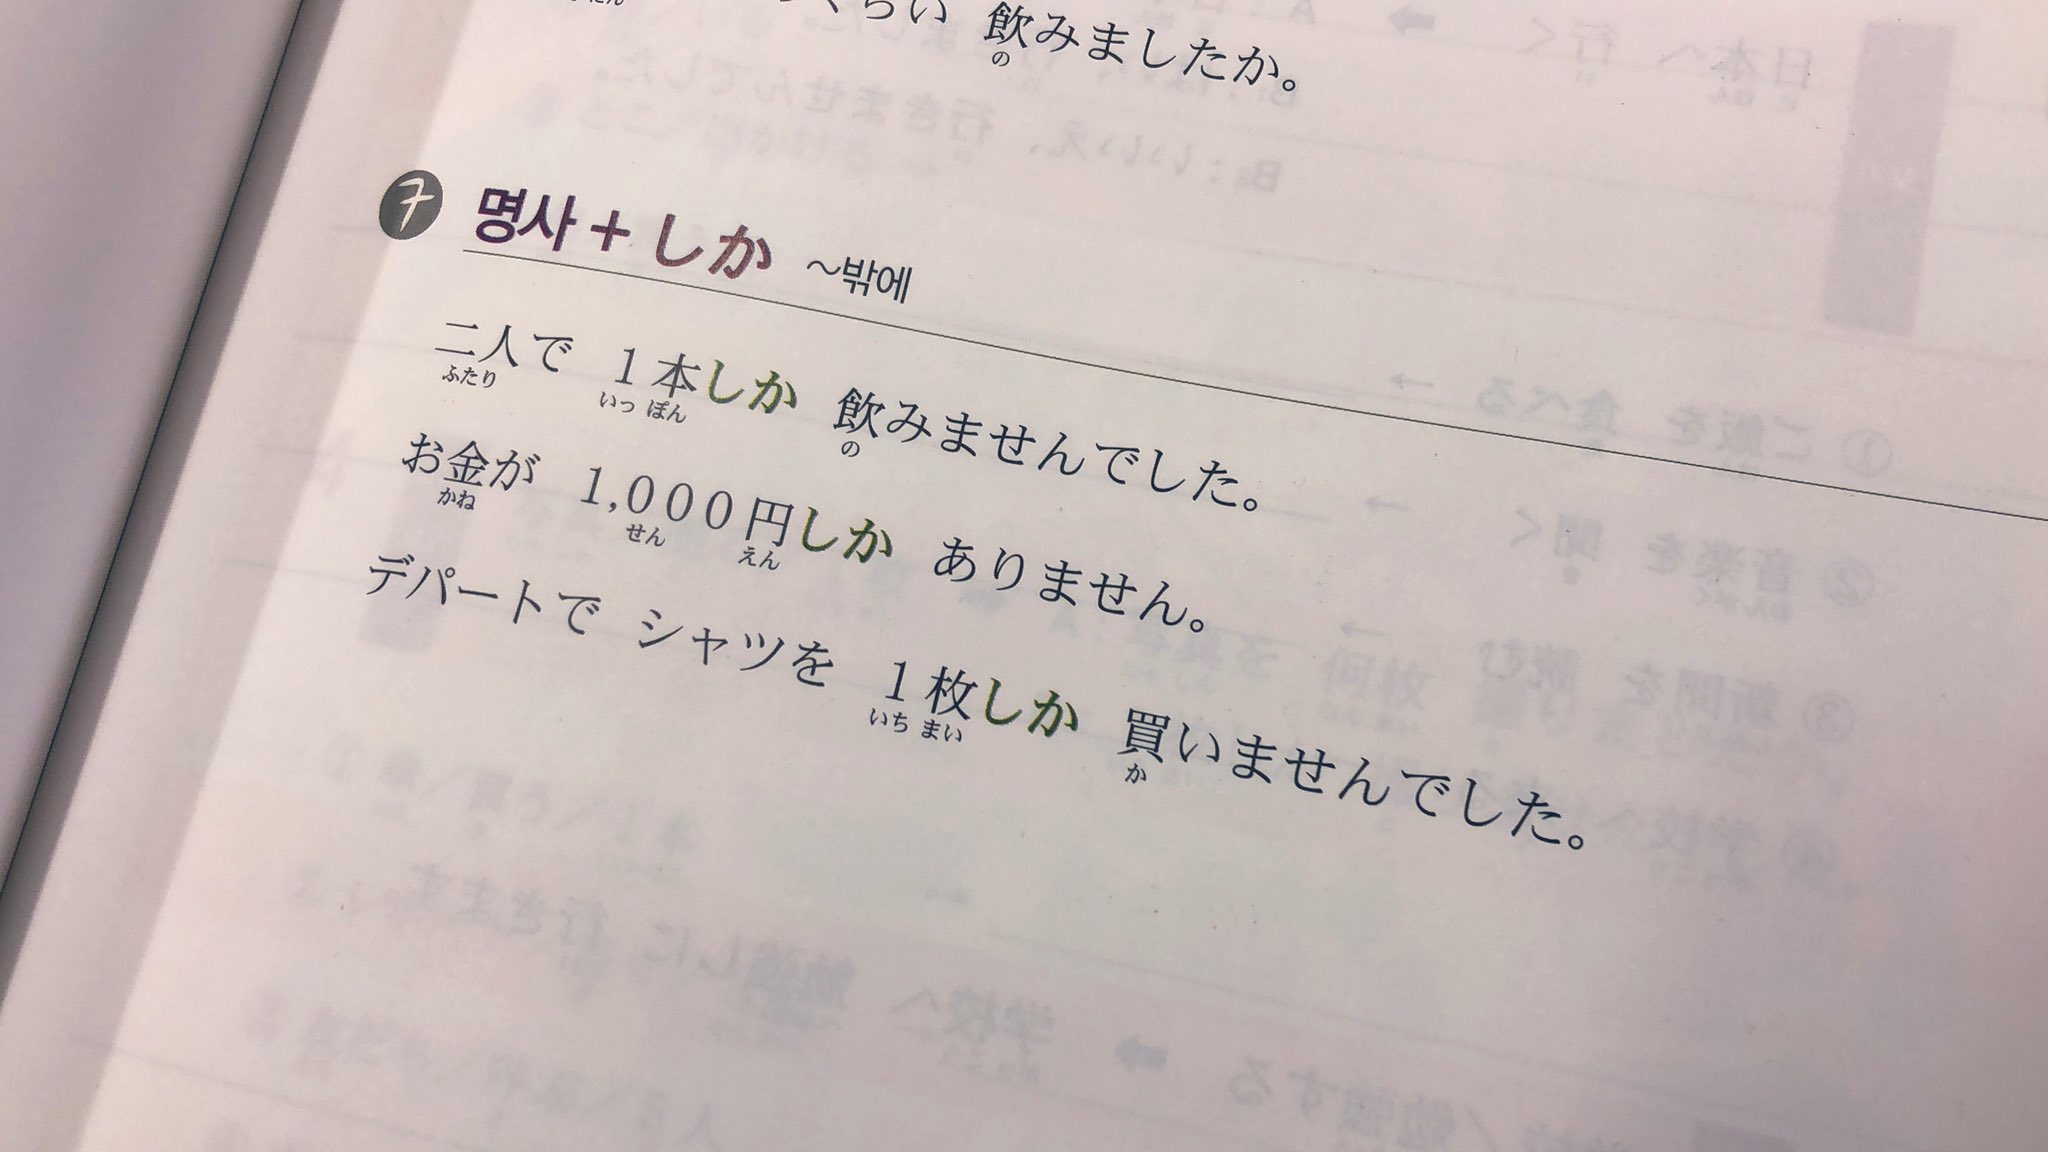 飲みましたか。
の
7 명사 + しか ～밖에
二人で 1本しか 飲みませんでした。
ふたり いっ ぽん の
お金が 1,000円しか ありません。
かね せん えん
デパートで シャツを 1枚しか 買いませんでした。
いち まい か